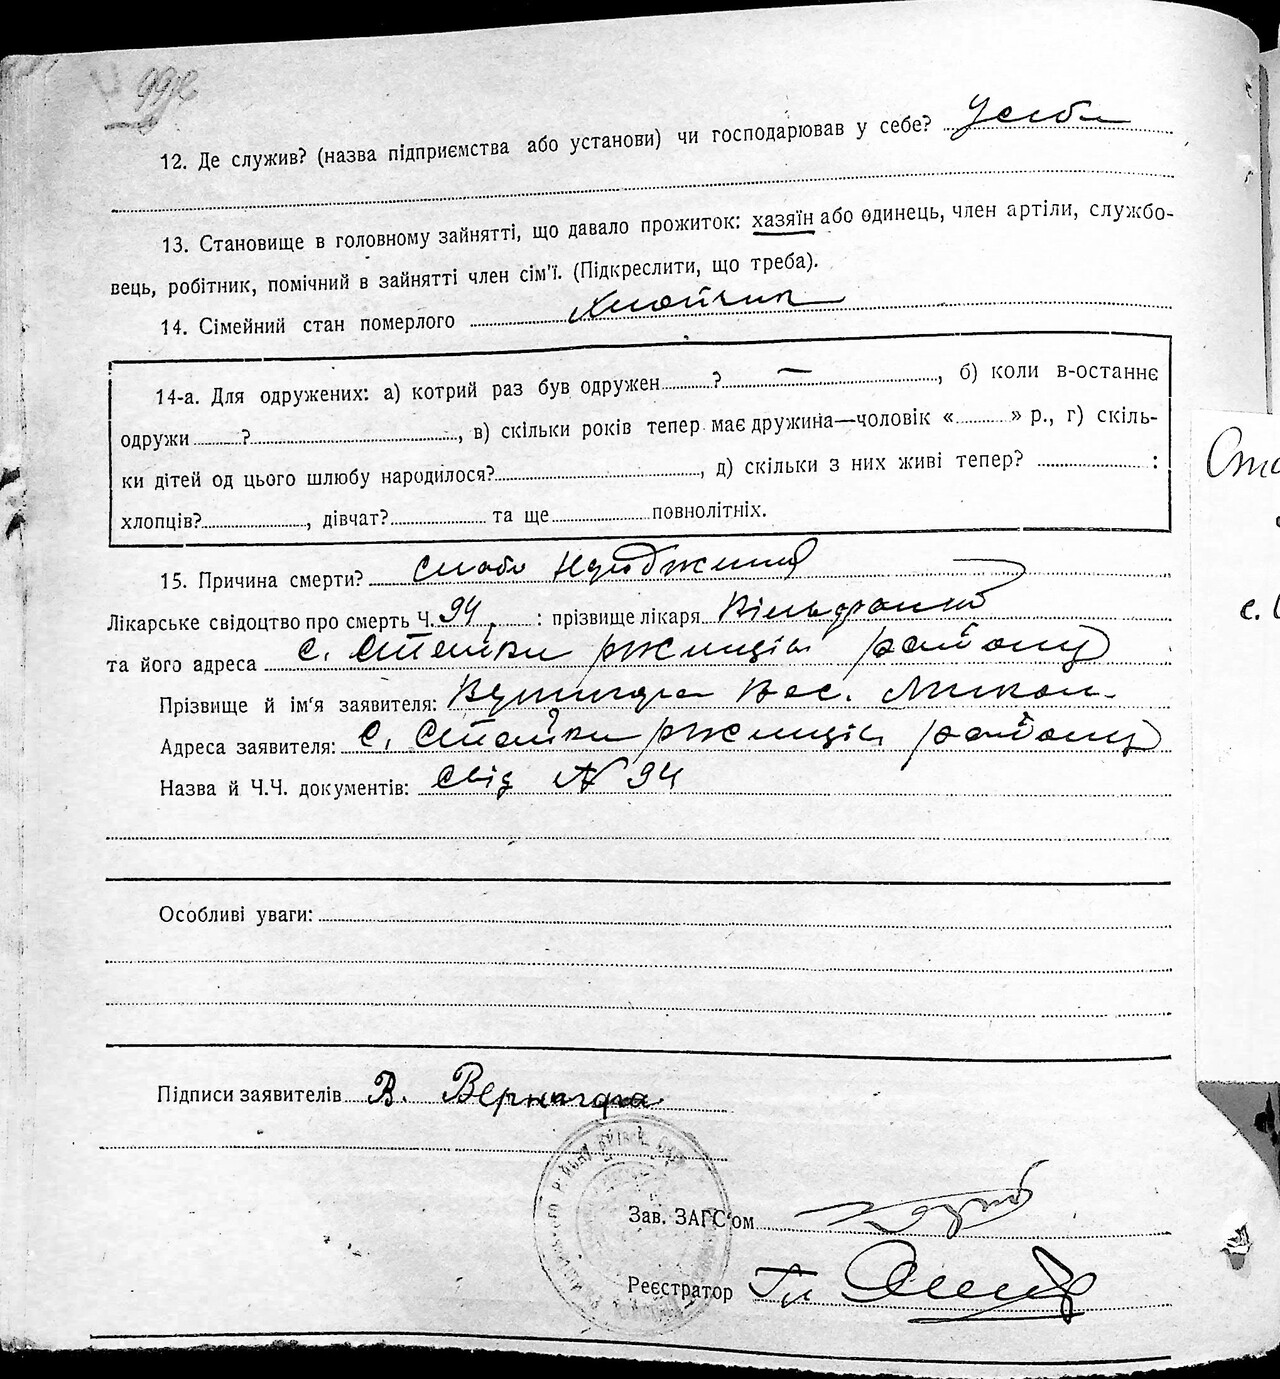 99
12. Де служив? (назва підприємства або установи) чи господарював у себе? У себе
13. Становище в головному зайнятті, що давало прожиток: хазяїн або одинець, член артіли, службо-
вець, робітник, помічний в зайнятті член сім'ї. (Підкреслити, що треба).
14. Сімейний стан померлого Хлопчик
14-а. Для одружених: а) котрий раз був одружен ? —, б) коли в-останнє
одружи ?, в) скільки років тепер має дружина—чоловік « » р., г) скіль-
ки дітей од цього шлюбу народилося?, д) скільки з них живі тепер? :
хлопців?, дівчат? та ще повнолітніх.
15. Причина смерти? слабо
Лікарське свідоцтво про смерть Ч. 94 : прізвище лікаря
та його адреса с. Стайки ржищів району
Прізвище й ім'я заявителя: Вас. Микол.
Адреса заявителя: с. Стайки ржищів району
Назва й Ч.Ч. документів: свід № 94
Особливі уваги:
Підписи заявителів В. Вернигора
Зав. ЗАГС'ом
Реєстратор